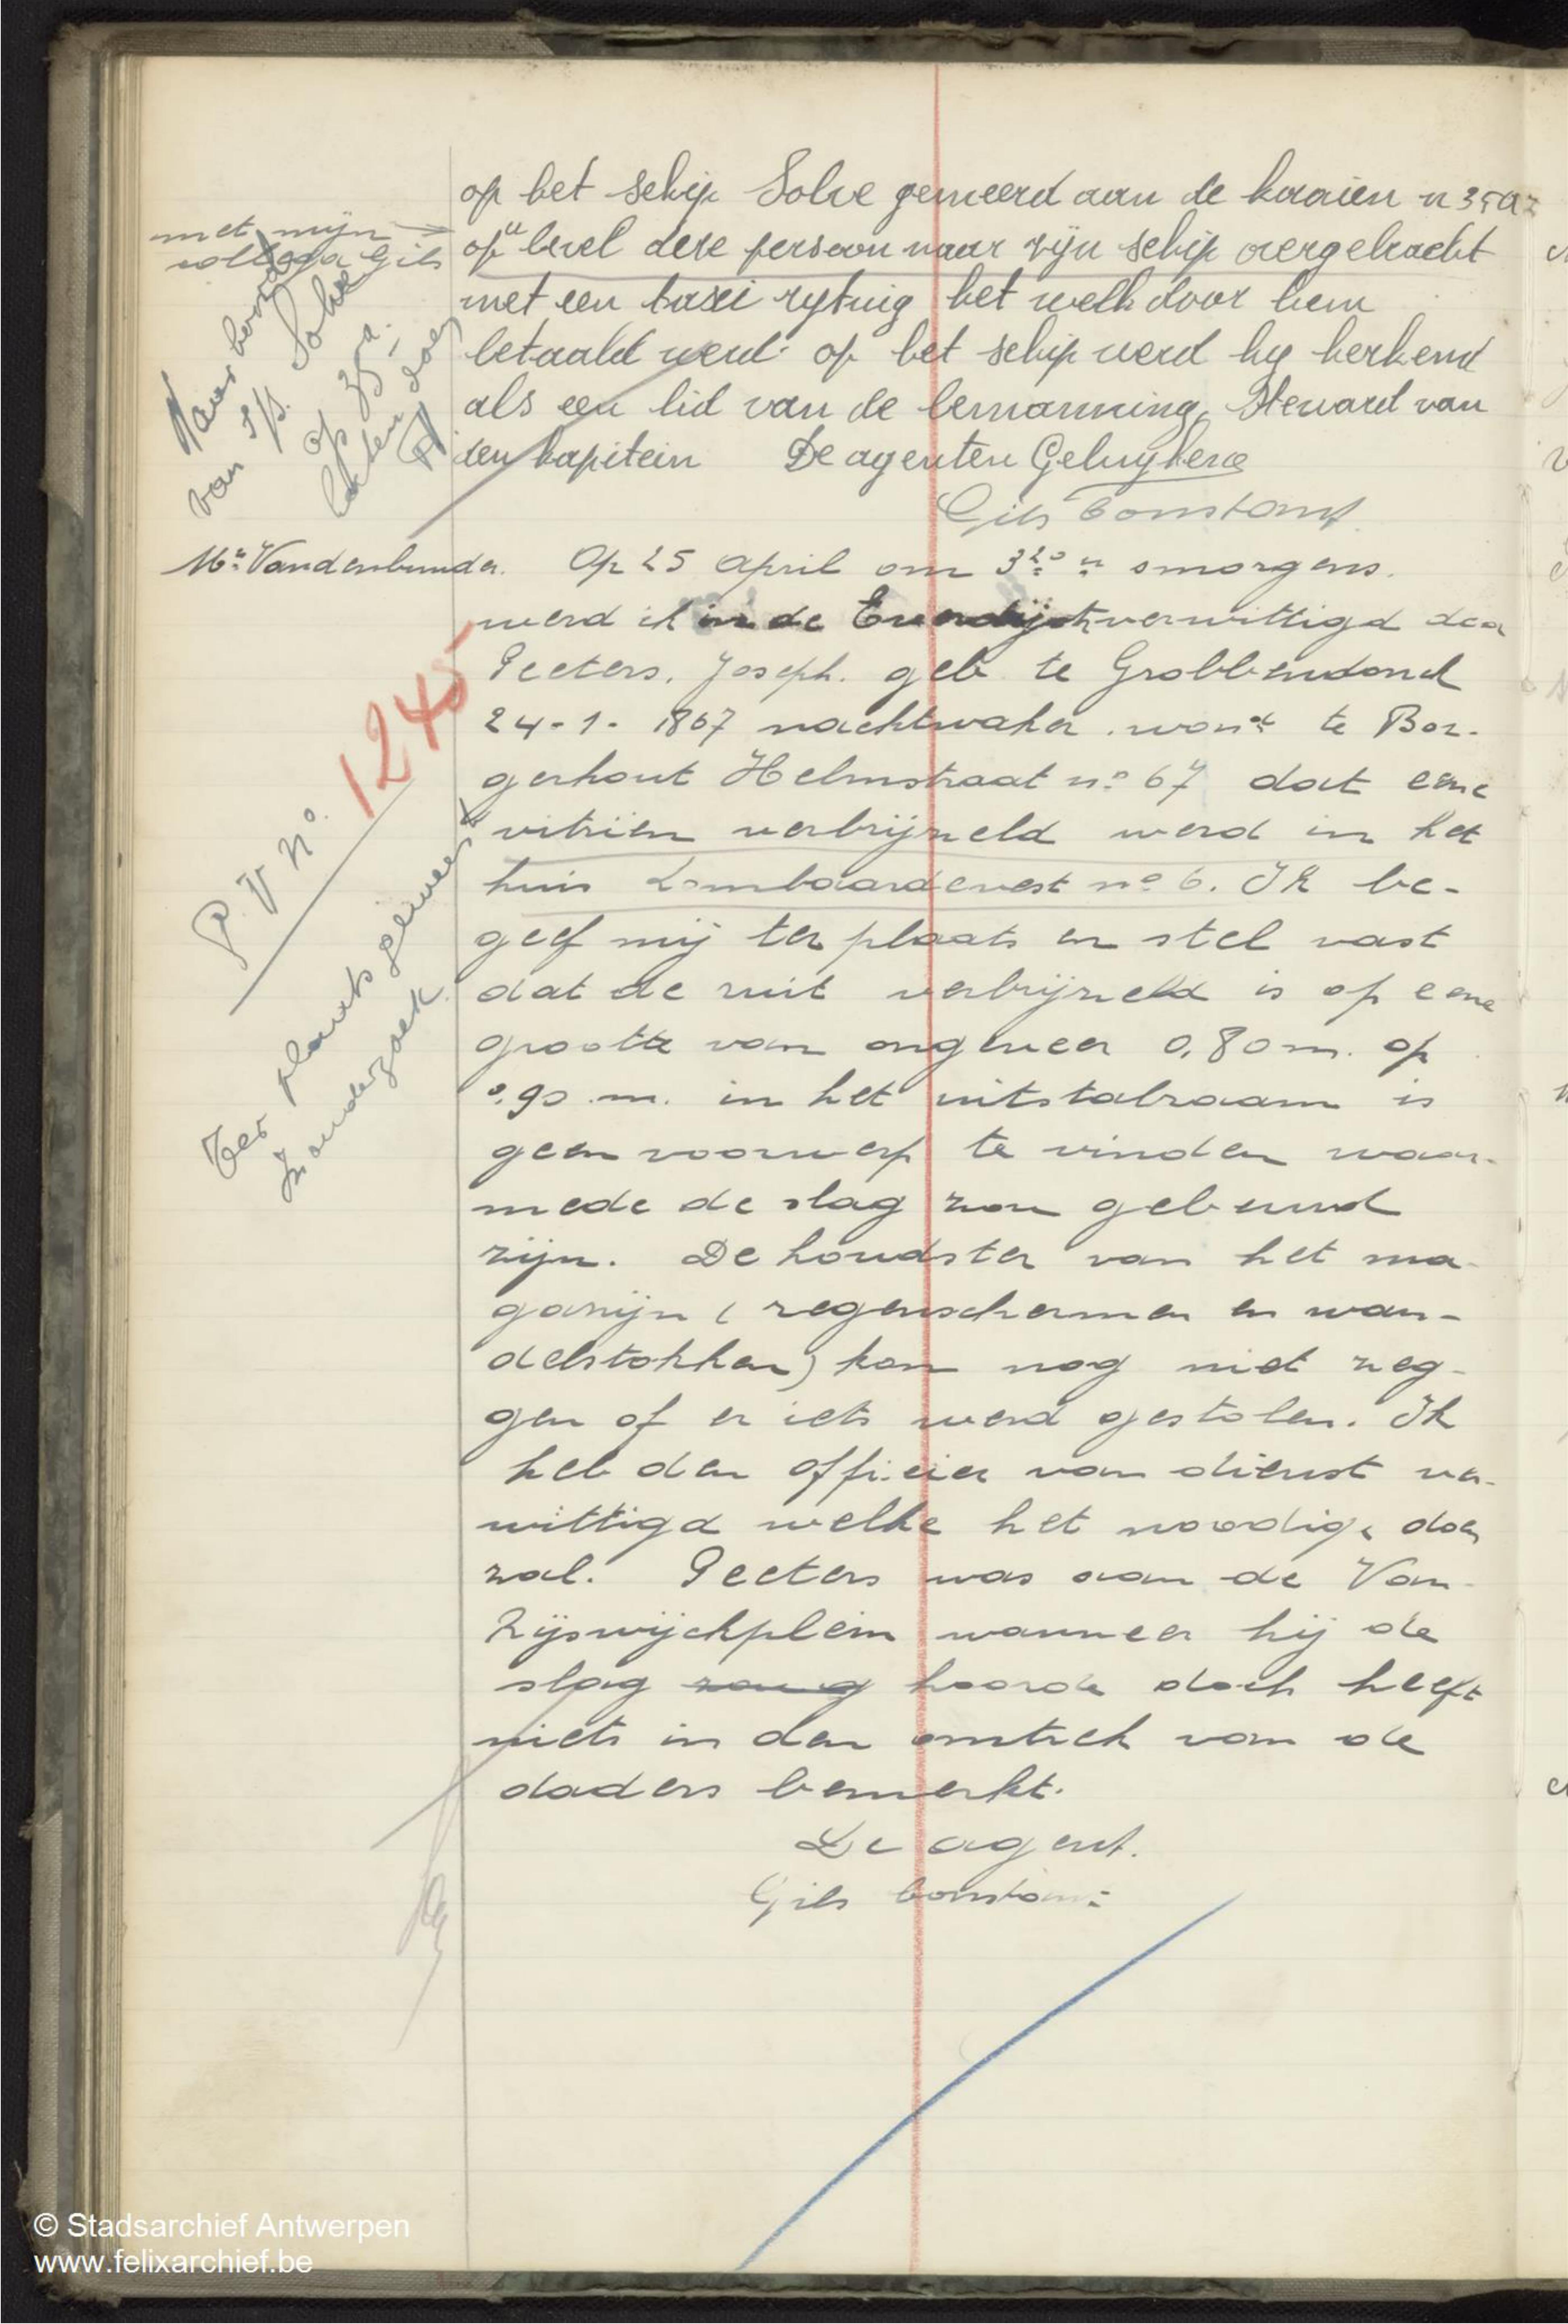 op het schip Solve gemeerd aan de kaaien n 35a
met mijn
collega Gils
op u bevel deze persoon naar zijn schip overgebracht
met een taxi rytuig het welk door hem
betaald werd. op het schip werd hy herkend
als een lid van de bemanning, Steward van
den kapitein De agenten Geluykens
Gils Constant
Naar boord
van s/s. Solve
op 35a.
laten doen
Mr Vandenbunder. Op 25 April om 3 20 u smorgens.
werd ik in de verwittigd door
Peeters, Joseph. geb te Grobbendonck
24-1-1867 nachtwaker. wond te Bor-
gerhout Helmstraat no 67 dat eene
vitrien verbrijzeld werd in het
huis Lombaardevest no 6. Ik be-
geef mij ter plaats en stel vast
dat de ruit verbrijzeld is op eene
grootte van ongeveer 0,80 m. op
0,90 m. in het uitstalraam is
geen voorwerp te vinden waar-
mede de slag zou gebeurd
zijn. De houdster van het ma-
gazijn (regenschermen en wan-
delstokken) kan nog niet zeg-
gen of er iets werd gestolen. Ik
heb den officier van dienst ver-
wittigd welke het noodige doen
zal. Peeters was aan de Van
Rijswijckplein wanneer hij de
slag hoorde doch heeft
niets in den omtrek van de
daders bemerkt.
De agent.
Gils Constant
P.V no. 1245
Ter plaats geweest
In onderzoek
© Stadsarchief Antwerpen
www.felixarchief.be